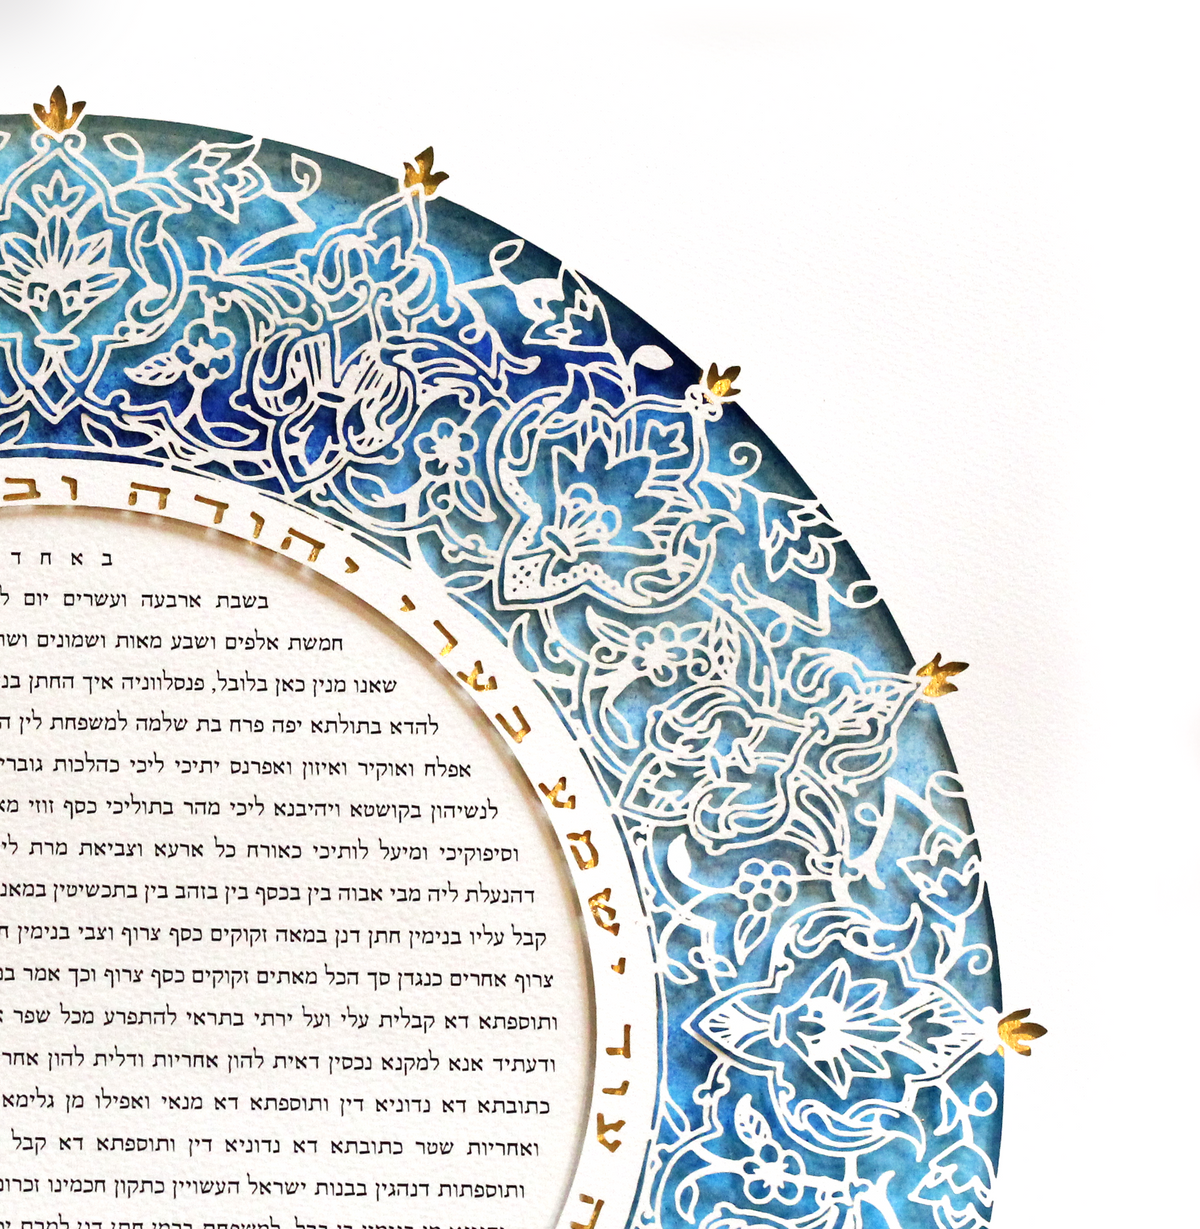 עוד ישמע בערי יהודה וב
באחד
בשבת ארבעה ועשרים יום ל
חמשת אלפים ושבע מאות ושמונים
שאנו מנין כאן בלובל, פנסלווניה איך החתן
להדא בתולתא יפה פרח בת שלמה למשפחת לין
אפלח ואוקיר ואיזון ואפרנס יתיכי ליכי כהלכות
לנשיהון בקושטא ויהיבנא ליכי מהר בתוליכי כסף זוזי
וסיפוקיכי ומיעל לותיכי כאורח כל ארעא וצביאת מרת
דהנעלת ליה מבי אבוה בין בכסף בין בזהב בין בתכשיטין
קבל עליו בנימין חתן דנן במאה זקוקים כסף צרוף וצבי בנימין
צרוף אחרים כנגדן סך הכל מאתים זקוקים כסף צרוף וכך אמר
ותוספתא דא קבלית עלי ועל ירתי בתראי להתפרע מכל שפר
ודעתיד אנא למקנא נכסין דאית להון אחריות ודלית להון
כתובתא דא נדוניא דין ותוספתא דא מנאי ואפילו מן גלימא
ואחריות שטר כתובתא דא נדוניא דין ותוספתא דא קבל
ותוספתות דנהגין בבנות ישראל העשויין כתקון חכמינו